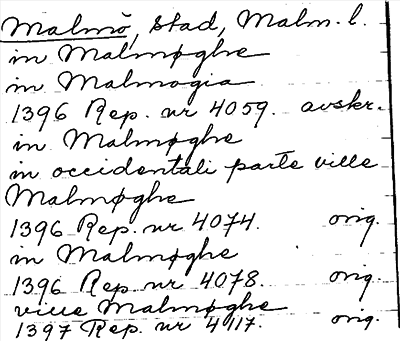 Malmö, stad, Malm. l.
in Malmøghe
in Malmogia
1396 Rep. nr 4059. avskr.
in Malmøghe
in occidentali parte ville
Malmøghe
1396 Rep. nr 4074. orig.
in Malmøghe
1396 Rep. nr 4078. orig.
ville Malmøghe
1397 Rep. nr 4117. orig.